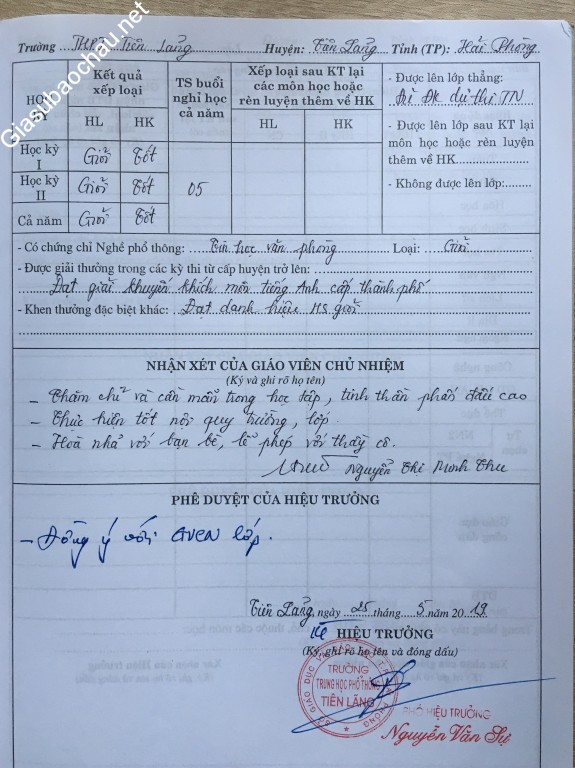 Giasubaochau.net
Trường THPT Tiên Lãng Huyện: Tiên Lãng Tỉnh (TP): Hải Phòng
HỌC KỲ
Kết quả xếp loại
HL HK
TS buổi nghỉ học cả năm
Xếp loại sau KT lại các môn học hoặc rèn luyện thêm về HK
HL HK
Học kỳ I Giỏi Tốt
Học kỳ II Giỏi Tốt 05
Cả năm Giỏi Tốt
- Được lên lớp thẳng:
Đủ ĐK dự thi TN
- Được lên lớp sau KT lại
môn học hoặc rèn luyện
thêm về HK
- Không được lên lớp:
- Có chứng chỉ Nghề phổ thông: Tin học văn phòng Loại: Giỏi
- Được giải thưởng trong các kỳ thi từ cấp huyện trở lên:
Đạt giải khuyến khích môn tiếng Anh cấp thành phố
- Khen thưởng đặc biệt khác: Đạt danh hiệu HS giỏi
NHẬN XÉT CỦA GIÁO VIÊN CHỦ NHIỆM
(Ký và ghi rõ họ tên)
- Chăm chỉ và cần mẫn trong học tập, tinh thần phấn đấu cao
- Thực hiện tốt nội quy trường, lớp
- Hoà nhã với bạn bè, lễ phép với thầy cô.
Nguyễn Thị Minh Thu
PHÊ DUYỆT CỦA HIỆU TRƯỞNG
- Đồng ý với GVCN lớp.
Tiên Lãng, ngày 25 tháng 5 năm 2019
KT HIỆU TRƯỞNG
(Ký, ghi rõ họ tên và đóng dấu)
TRƯỜNG
TRUNG HỌC PHỔ THÔNG
TIÊN LÃNG
PHÓ HIỆU TRƯỞNG
Nguyễn Văn Sự